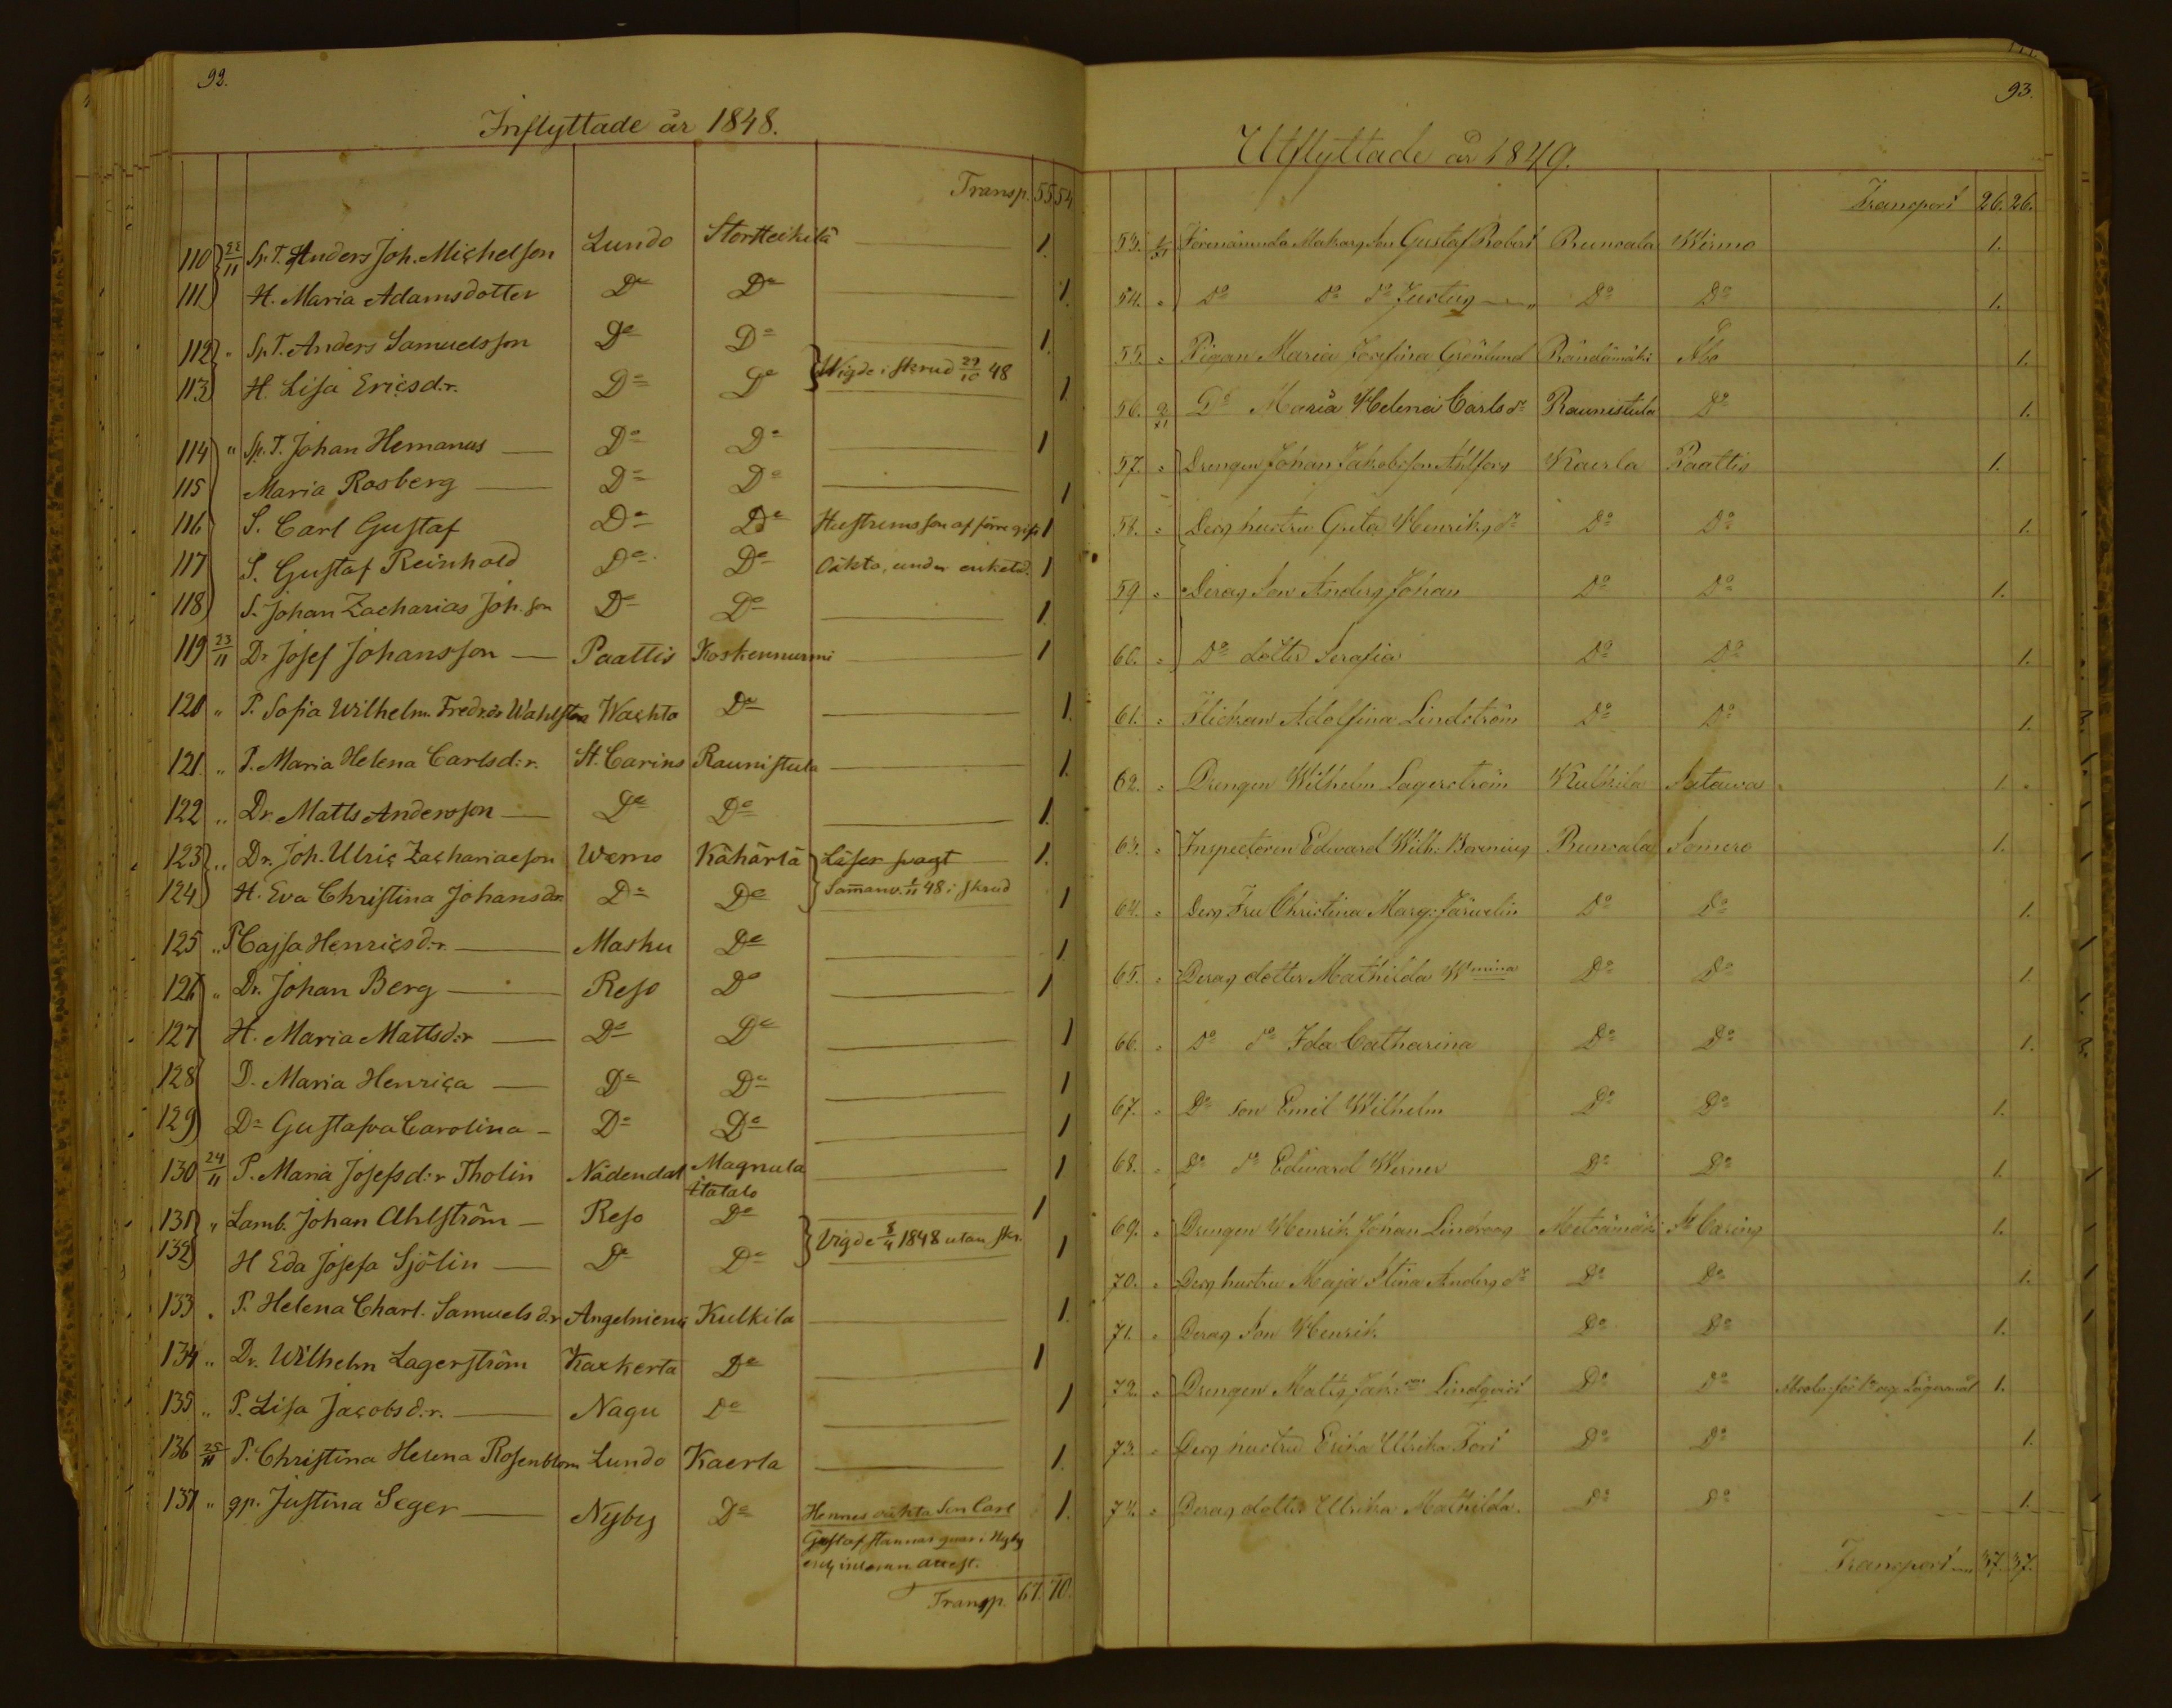 92.
Inflyttade år 1848.
Transp. 55 54
110 22/11 Sp. T. Anders Joh. Michelson Lundo Stortteikilä 1.
111 H. Maria Adamsdotter Do Do 1.
112 " Sp. T. Anders Samuelsson Do Do 1.
113 H. Lisa Ericsd:r. Do Do Wigde i skrud 29/10 48 1.
114 " Sp. T. Johan Hemanus Do Do 1
115 Maria Rosberg Do Do 1
116 S. Carl Gustaf Do Do Hustruns son af förre gift. 1
117 S. Gustaf Reinhold Do Do Oäkta, under enkest. 1
118 S. Johan Zacharias Joh. son Do Do 1.
119 23/11 Dr Josef Johansson Paattis Koskennurmi 1
120 " P. Sofia Wilhelm. Fredr:dr Wahlsten Wachto Do 1.
121 " P. Maria Helena Carlsd:r. St. Carins Raunistula 1.
122 " Dr. Matts Andersson Do Do 1.
123 " Dr. Joh. Ulric Zachariaeson Wemo Kähärlä Läser svagt 1.
124 H. Eva Christina Johansdr. Do Do Samanv. 1/11 48 i skrud 1
125 " P Cajsa Henricsd:r. Masku Do 1.
126 " Dr. Johan Berg Reso Do 1
127 H. Maria Mattsd:r Do Do 1
128 D. Maria Henrica Do Do 1
129 Do Gustafva Carolina Do Do 1
130 24/11 P. Maria Josefsd:r Tholin Nådendal Magnula 1
Itätalo
131 " Lamb. Johan Ahlström Reso Do 1
132 H Eda Josefa Sjölin Do Do Vigde 8/4 1848 utan skr. 1
133 " P. Helena Charl. Samuelsd:r Angelniemi Kulkila 1.
134 " Dr. Wilhelm Lagerström Kaxkerta Do 1
135 " P. Lisa Jacobsd:r. Nagu Do 1
136 25/11 P. Christina Helena Rosenblom Lundo Kaerla 1.
137 " gp. Justina Seger Nyby Do Hennes oäkta Son Carl 1.
Gustaf stannar qvar i Nyby
Transp. 67. 70.
93.
Utflyttade år 1849.
Transport 26. 26.
53. Son Gustaf Robert Runcala Wirmo 1.
54. " Do Do Do Justus Do Do 1.
55. " Pigan Maria Josefina Grönlund Rändämäki Åbo 1.
56. Do Maria Helena Carls dr Raunistula Do 1.
57. " Drengen Johan Jakobsson Ahlfors Kaerla Paattis 1.
58. " Ders hustru Greta Henriks dr Do Do 1.
59 " Deras Son Anders Johan Do Do 1.
60. " Do dotter Serafia Do Do 1.
61. " Flickan Adolfina Lindström Do Do 1.
62. " Drengen Wilhelm Lagerström Kulkila Patawa 1.
63. " Inspectoren Edward Wilh: Borenius Runcala Somero 1.
64. " Ders Fru Christina Marg: Järvelin Do Do 1.
65. " Deras dotter Mathilda Wmina Do Do 1.
66. " Do do Ida Catharina Do Do 1.
67. " Do son Emil Wilhelm Do Do 1.
68. " Do do Edward Werner Do Do 1.
69. " Drengen Henrik Johan Lindroos Metsämäki St Carins 1.
70. " Ders hustru Maja Stina Anders dr Do Do 1.
71. " Deras Son Henrik Do Do 1.
72. " Drengen Matts Lindqvist Do Do Absolv: för Lägersmål 1.
73. " Ders hustru Erika Ulrika Fort Do Do 1.
74. " Deras dotter Ulrika Mathilda Do Do 1.
Transport 37. 37.